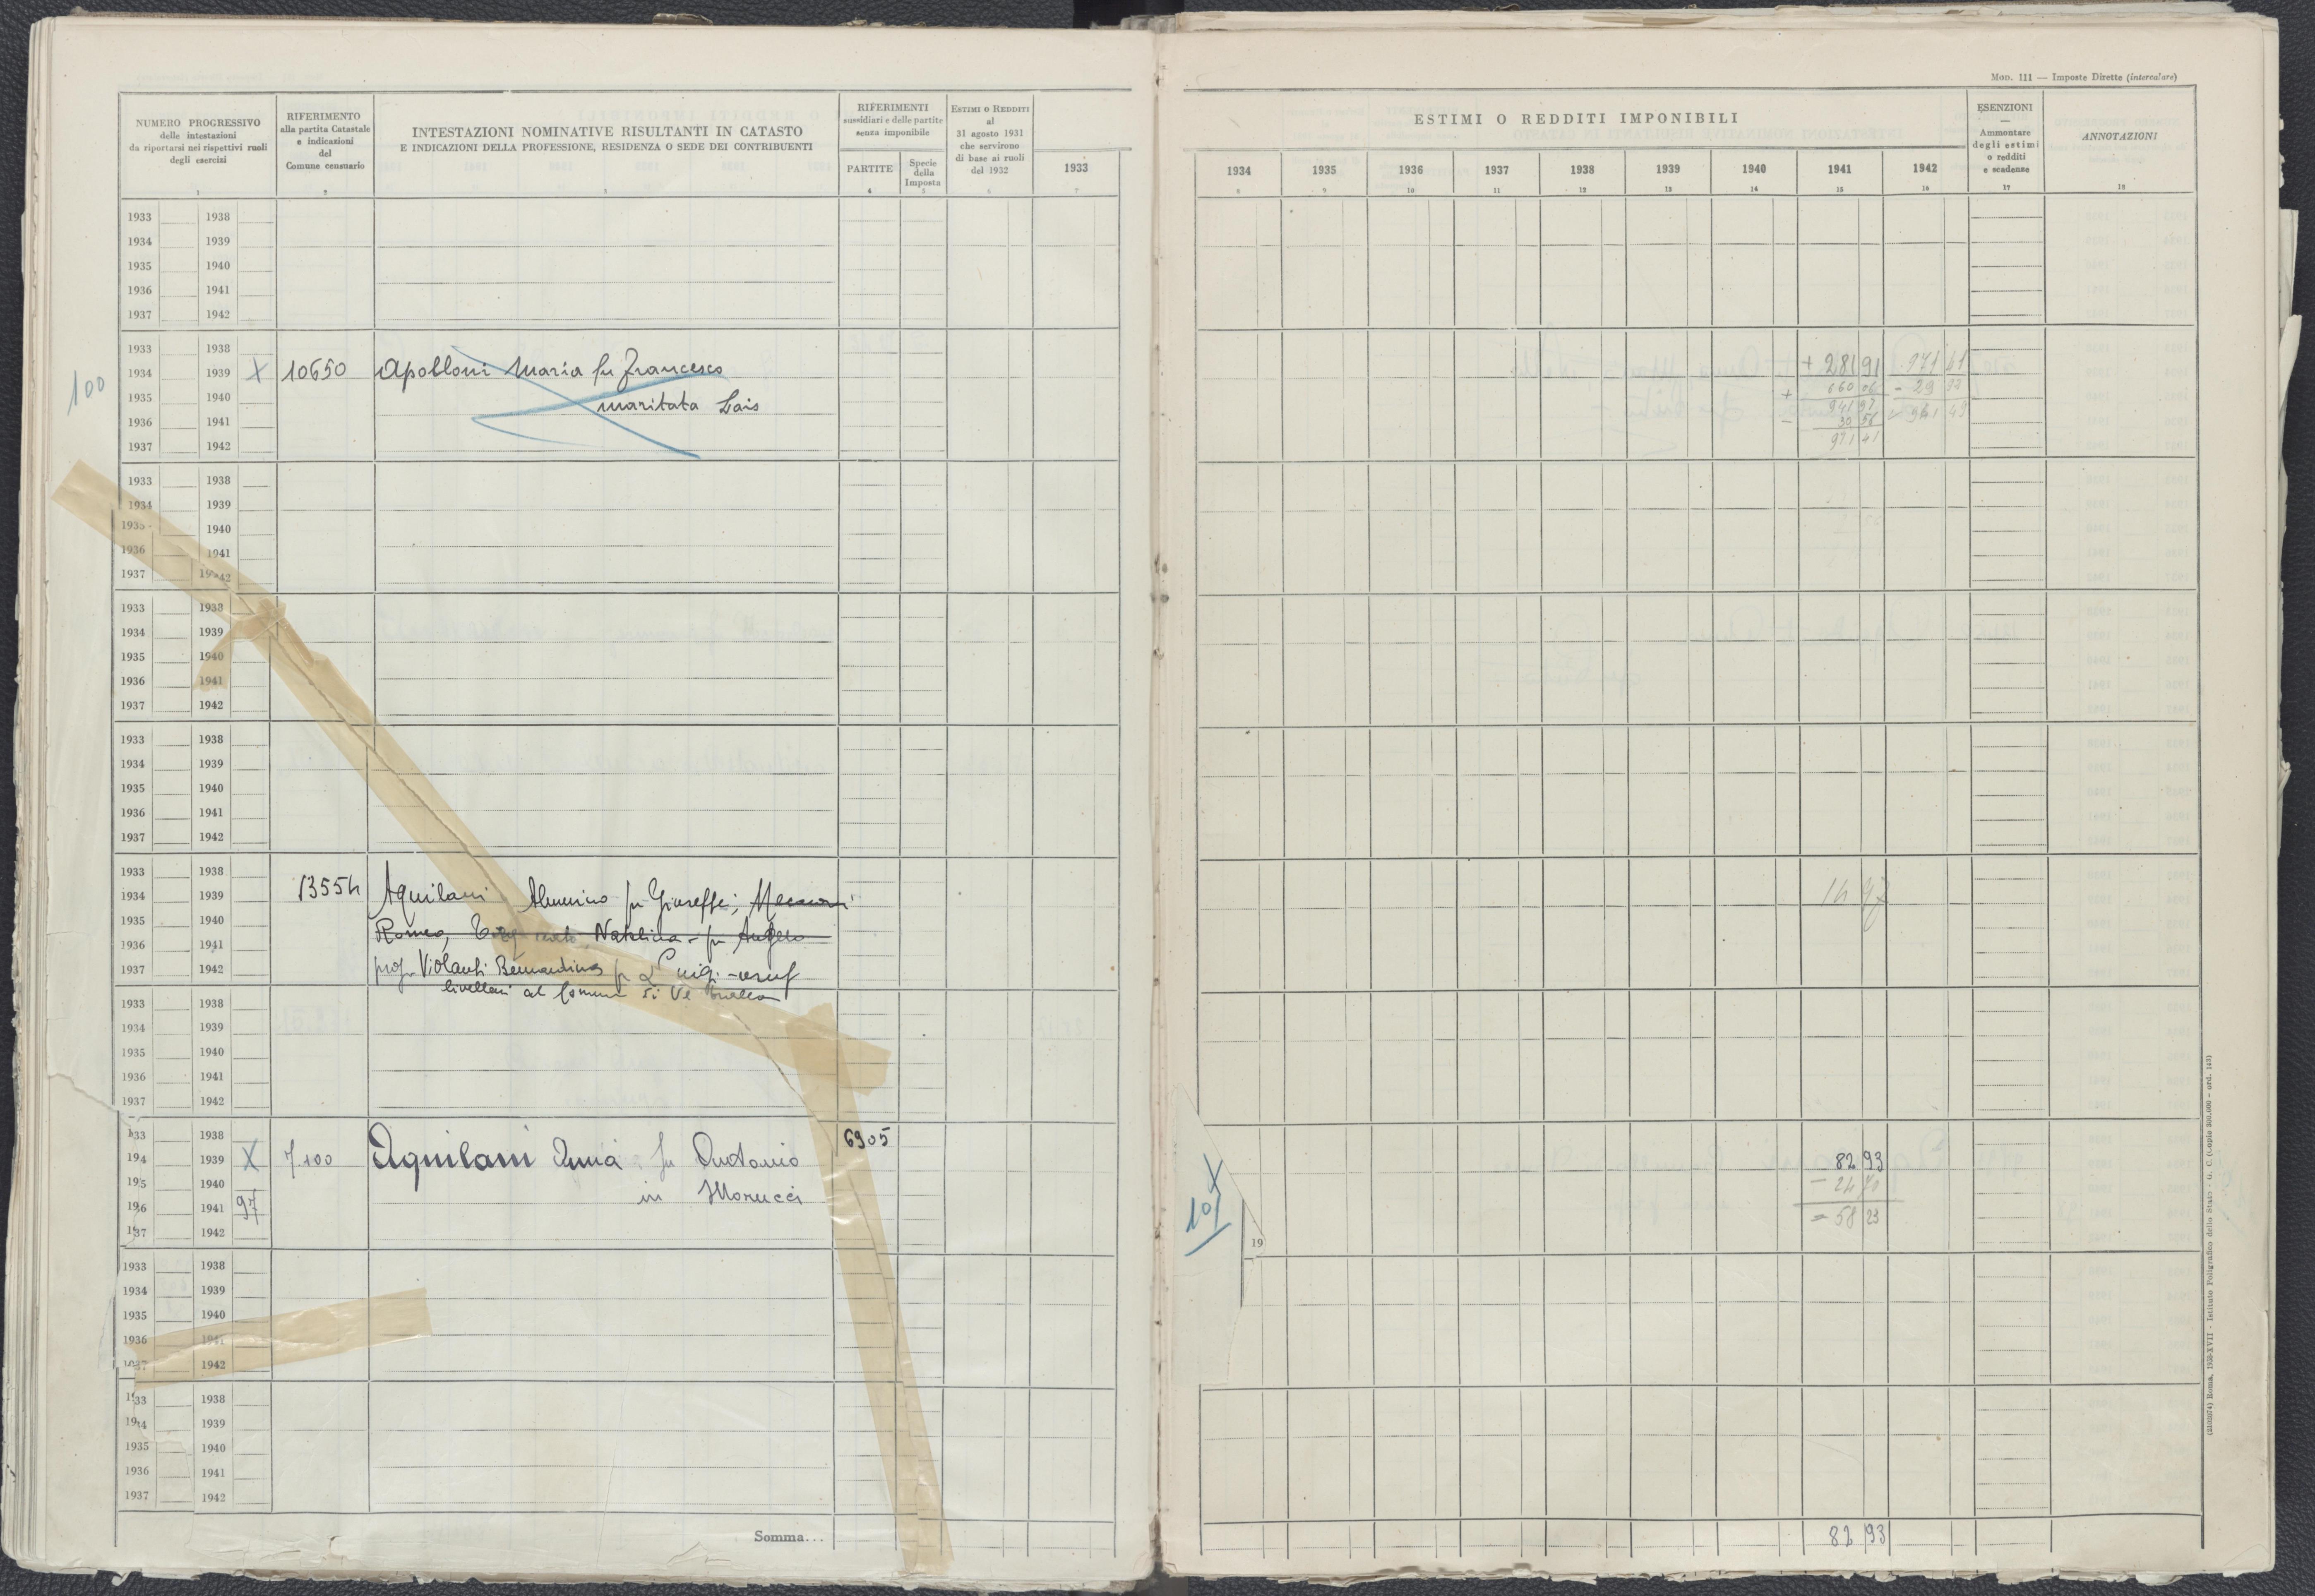 Mod. 111 — Imposte Dirette (intercalare)
NUMERO PROGRESSIVO
delle intestazioni
da riportarsi nei rispettivi ruoli
degli esercizi
1
RIFERIMENTO
alla partita Catastale
e indicazioni
del
Comune censuario
2
INTESTAZIONI NOMINATIVE RISULTANTI IN CATASTO
E INDICAZIONI DELLA PROFESSIONE, RESIDENZA O SEDE DEI CONTRIBUENTI
3
RIFERIMENTI
sussidiari e delle partite
senza imponibile
PARTITE
4
Specie
della
Imposta
5
ESTIMI O REDDITI
al
31 agosto 1931
che servirono
di base ai ruoli
del 1932
6
1933
7
ESTIMI O REDDITI IMPONIBILI
1934 1935 1936 1937 1938 1939 1940 1941 1942
8 9 10 11 12 13 14 15 16
ESENZIONI
—
Ammontare
degli estimi
o redditi
e scadenze
17
ANNOTAZIONI
18
1933 1938
1934 1939
1935 1940
1936 1941
1937 1942
100
1933 1938
1934 1939 X 10650 Apolloni Maria fu Francesco + 281 91 971 41
1935 1940 maritata Lais + 660 06 - 29 92
1936 1941 941 97 941 49
- 30 56
1937 1942 971 41
1933 1938
1934 1939
1935 1940
1936 1941
1937 1942
1933 1938
1934 1939
1935 1940
1936 1941
1937 1942
1933 1938
1934 1939
1935 1940
1936 1941
1937 1942
1933 1938
1934 1939 13554 Aquilani fu Giuseppe; 14 97
1935 1940 Romeo, Natalina fu Angelo
1936 1941
1937 1942 Violanti Bernardino fu Luigi - usuf
livellari al Comune di Vetralla
1933 1938
1934 1939
1935 1940
1936 1941
1937 1942
33 1938 6905
194 1939 X 7100 Aquilani Anna fu Antonio 82 93
195 1940 in Morucci - 24 70
196 1941 97 = 58 23
137 1942 19
101 X
1933 1938
1934 1939
1935 1940
1936 1941
1937 1942
1933 1938
1934 1939
1935 1940
1936 1941
1937 1942
Somma... 82 93